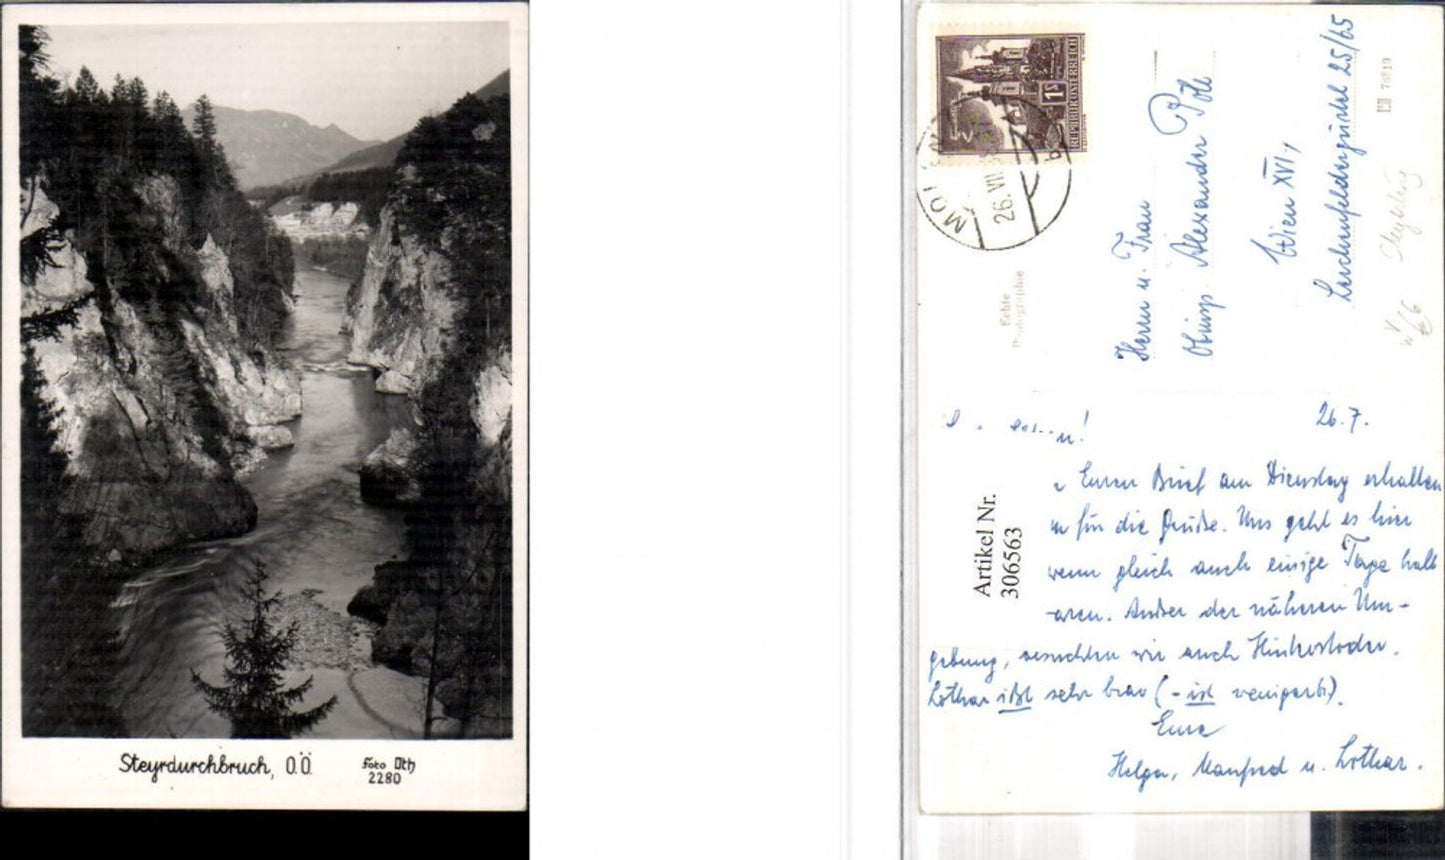 Steyrdurchbruch, O.Ö.
Foto Oth
2280
1S
REPUBLIK ÖSTERREICH
26. VII
Echte
Photographie
Herrn u. Frau
Alexander
Wien XVI.,
Lerchenfeldergürtel 25/65
26.7.
Artikel Nr.
306563
Euren Brief am Dienstag erhalten
für die Grüße. Uns geht es hier
wenn gleich auch einige Tage halb
waren. Außer der näheren Um-
gebung, besuchten wir auch Hinterstoder.
Lothar ißt sehr brav (- ist weniger
Eure
Helga, Manfred u. Lothar.